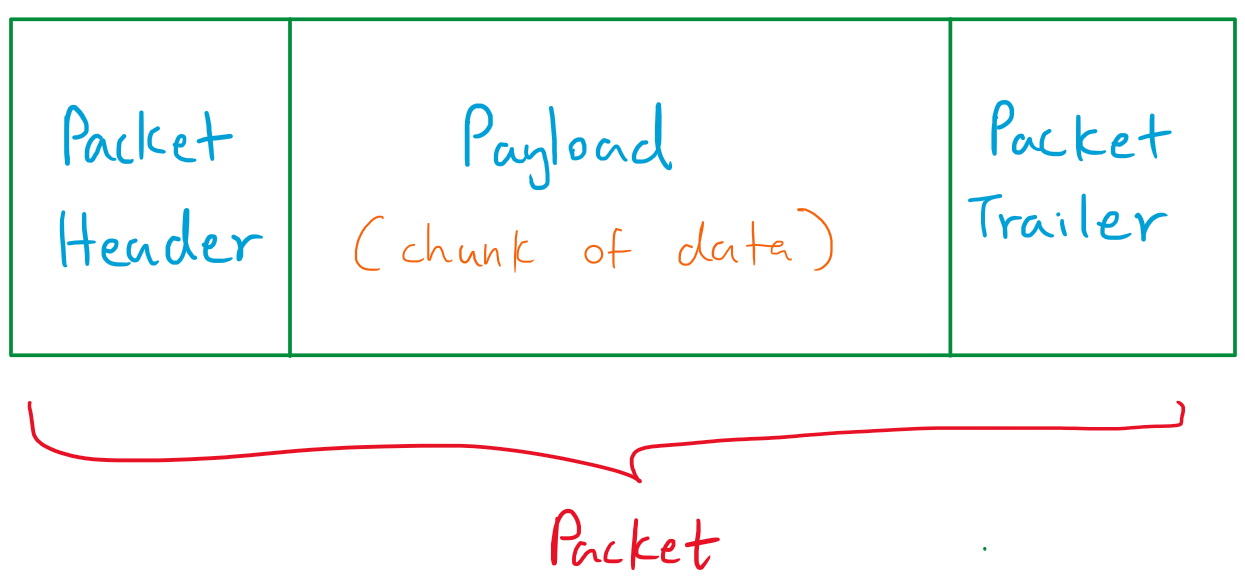 Packet
Header
Payload
(chunk of data)
Packet
Trailer
Packet